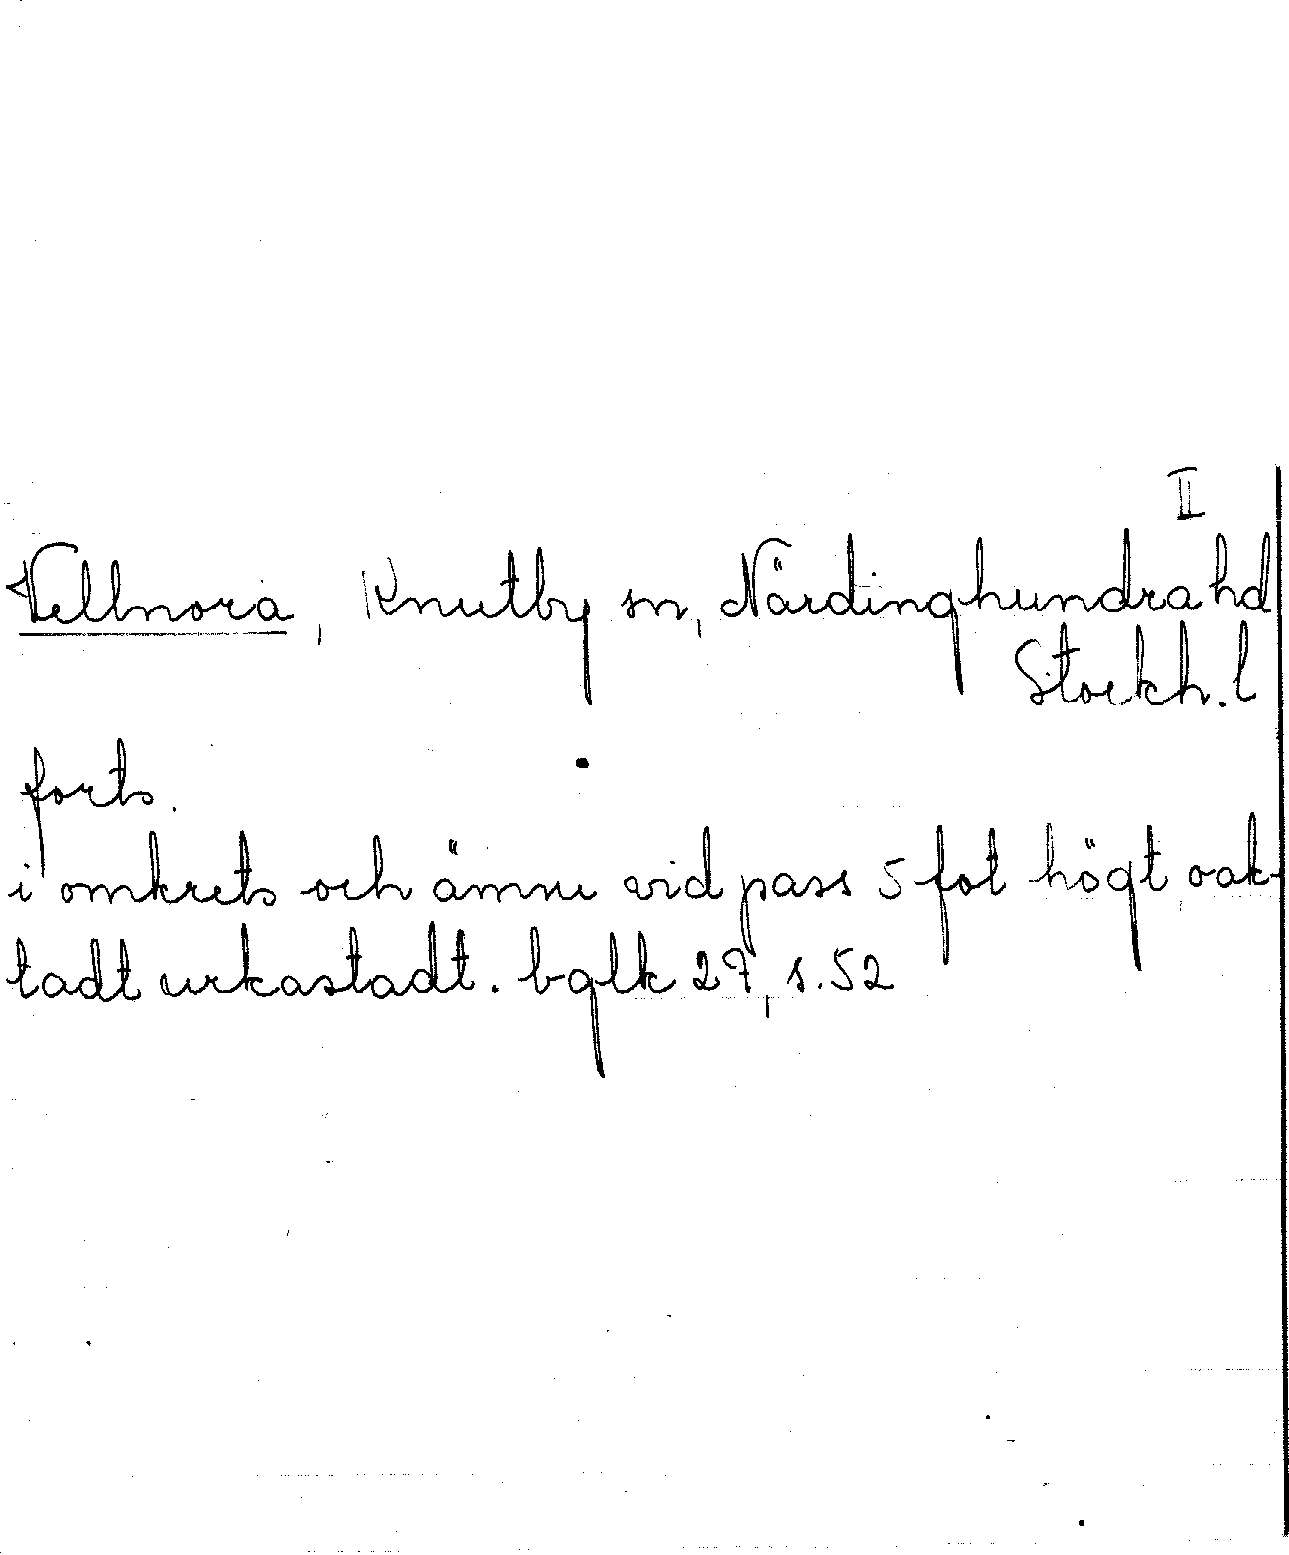 II
Vellnora, Knutby sn, Närdinghundra hd
Stockh. l
forts.
i omkrets och ännu vid pass 5 fot högt, oak-
tadt urkastadt. bglk 27, s. 52